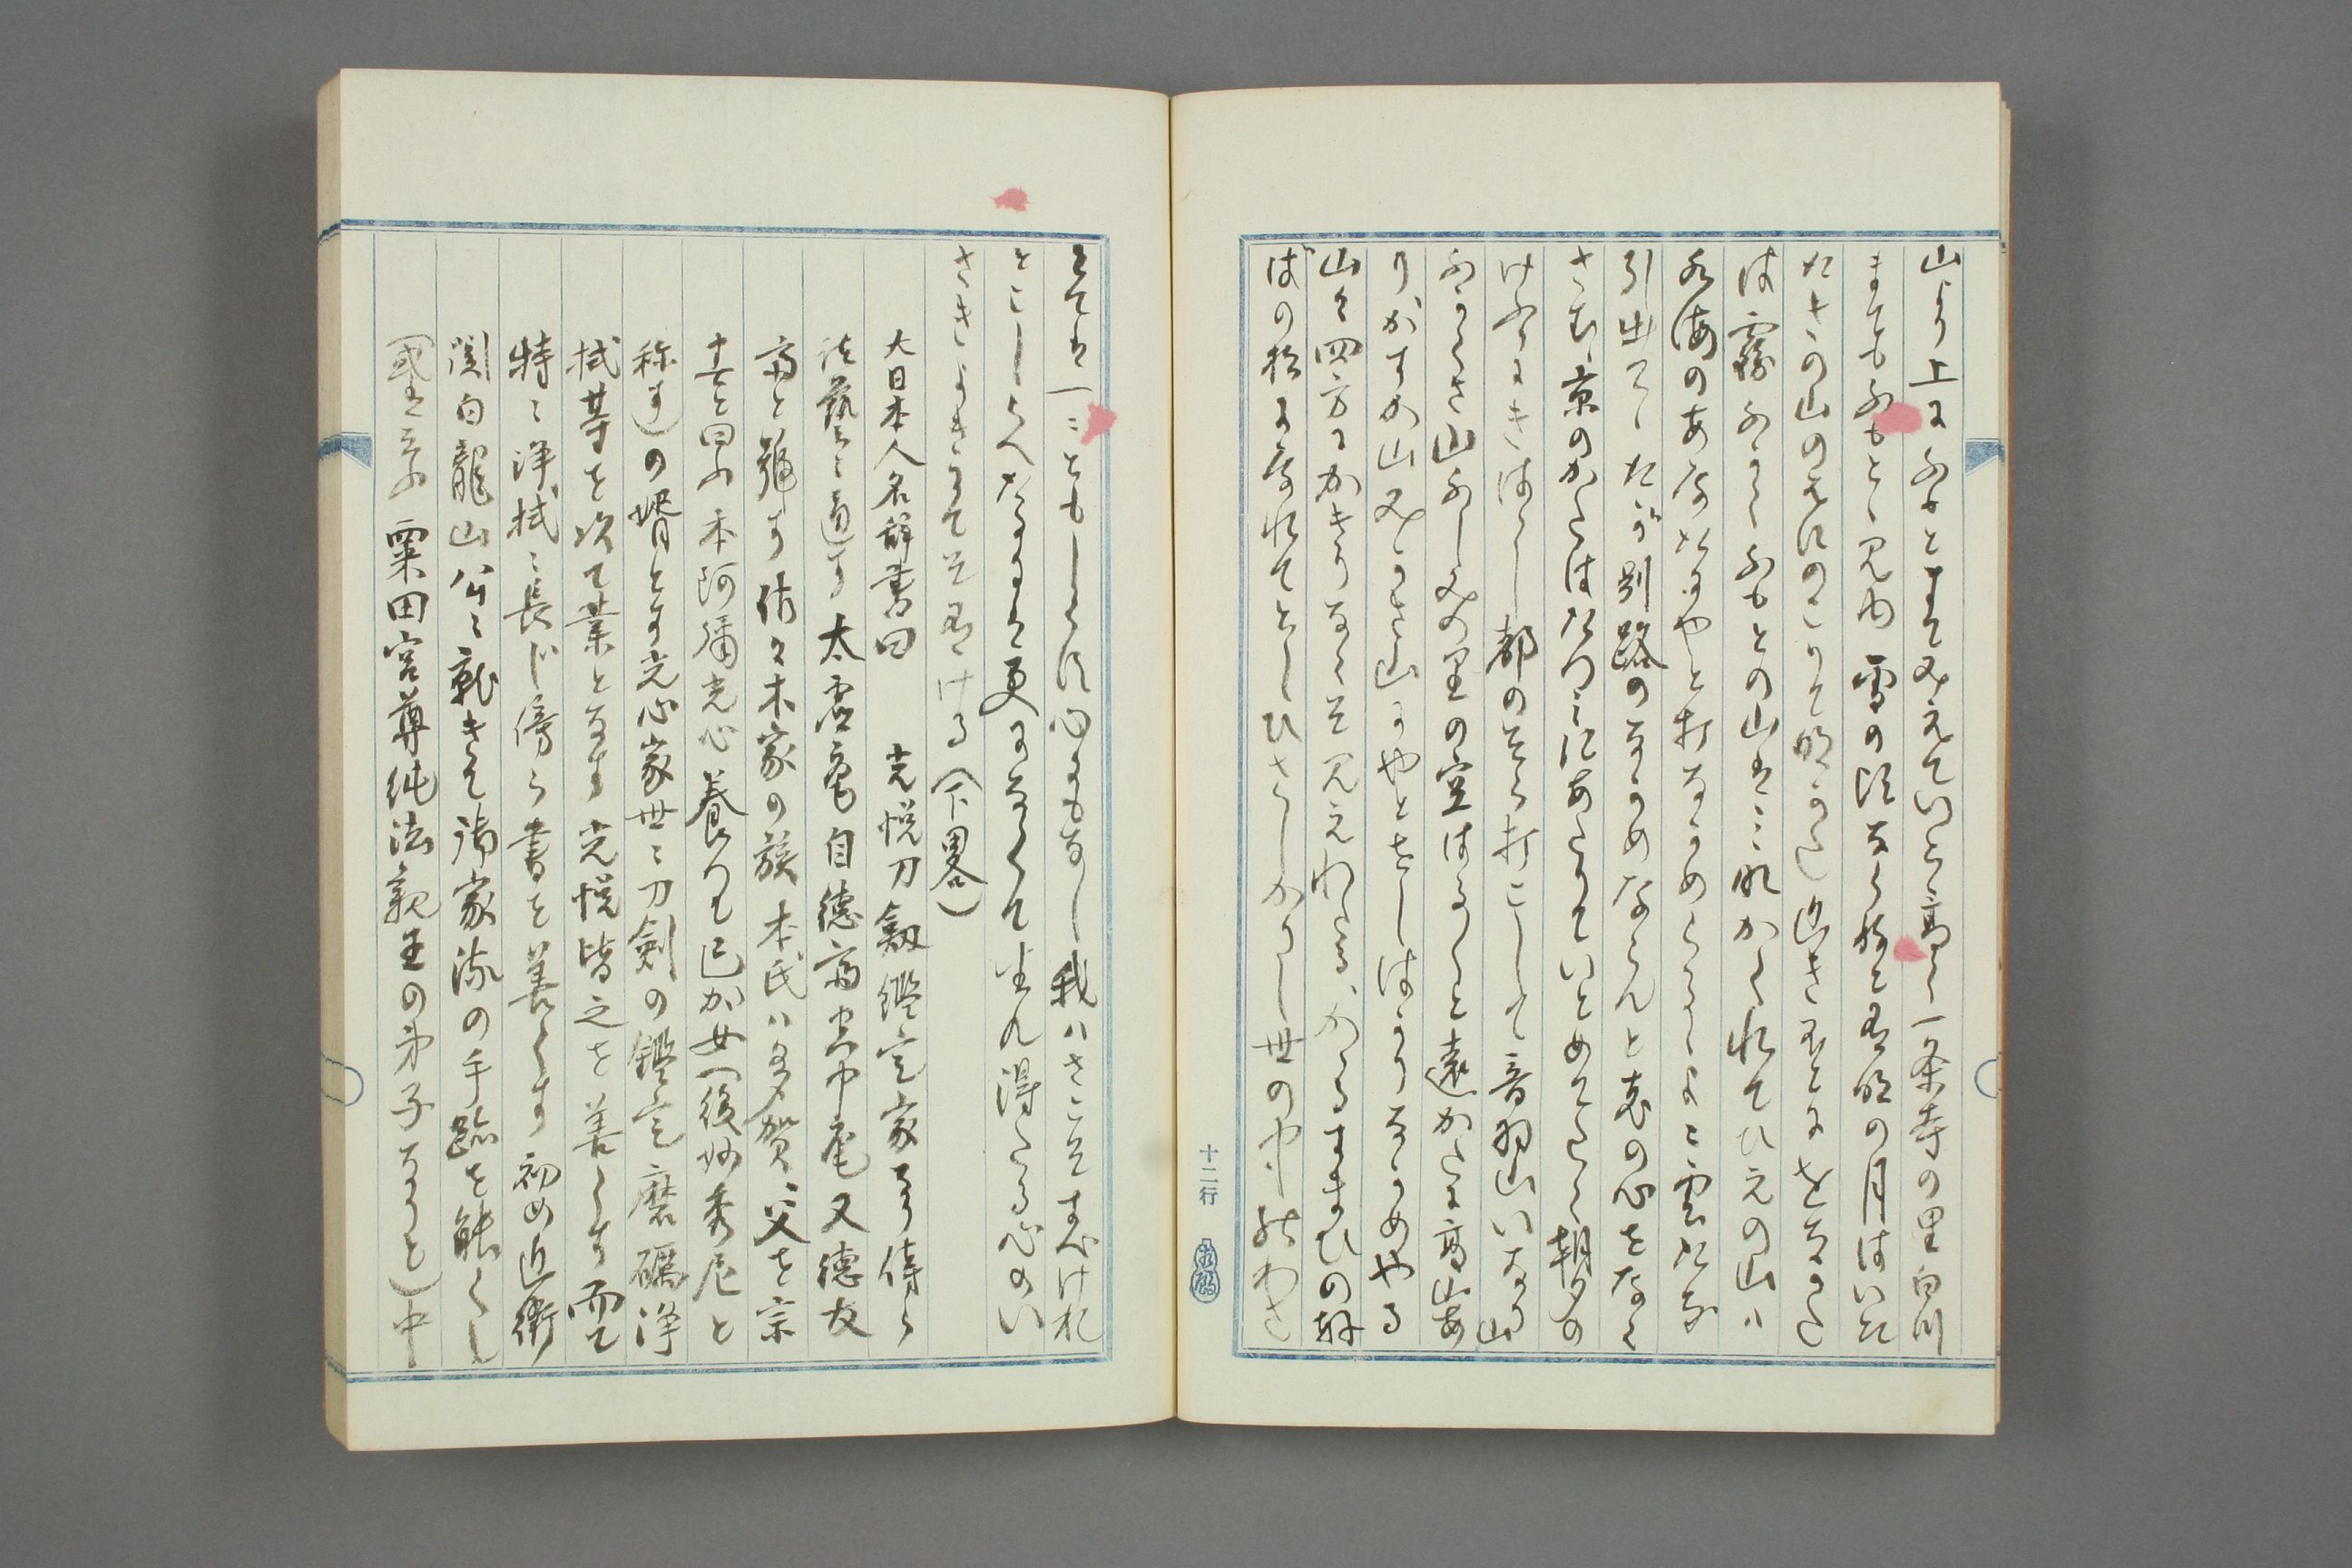 山より上にふもとまて見えていと高く一条寺の里白川
まてもふもとゝ見ゆ雪の頃なら ねと有明の月はいた
たきの山のはにのこりて明かた近きほとにをちかた
は霧ふかくふもとの山はミな かくれてひえの山ハ
水海のあなたにやと打なかめらるゝよこ雲たな
引出てゝたが別路のなかめならんと恋の心をなく
さむ京のかたはたつミにあたりていとめてたく朝夕の
けふりにきはゝし都のそら打こして音羽山いなり山
ふかくさ山ふしみの里の空はる〱と遠かたに高山あ
りかすか山みかさ山にやとをしはかりなかめやる
山々四方にかきりなくそ見えわたる かゝるすまひの軒
ばの松になれてとしひさしかりし世の わさ
とては一ミともしらす心にもなし我ハさこそすへけれ
とこしらへなすは更になくて生れ得たる心のい
さきよきにてそ有ける（下畧）
大日本人名辞書曰　光悦刀劔鑑定家なり傍ら
諸藝に通す太虚菴自徳斎空中菴又徳友
斎と號す佐々木家の族本氏ハ多賀、父を宗
十吉と曰ふ本阿彌光心養つて己か女（後妙秀尼と
称す）の壻とす光心家世々刀剣の鑑定磨礪浄
拭等を以て業となす光悦皆之を善くす而て
特に浄拭に長じ傍ら書を善くす初め近衛
関白龍山公に就きて諸家流の手蹟を能くし
（或は云ふ粟田宮尊純法親王の弟子なりと）中
十二行